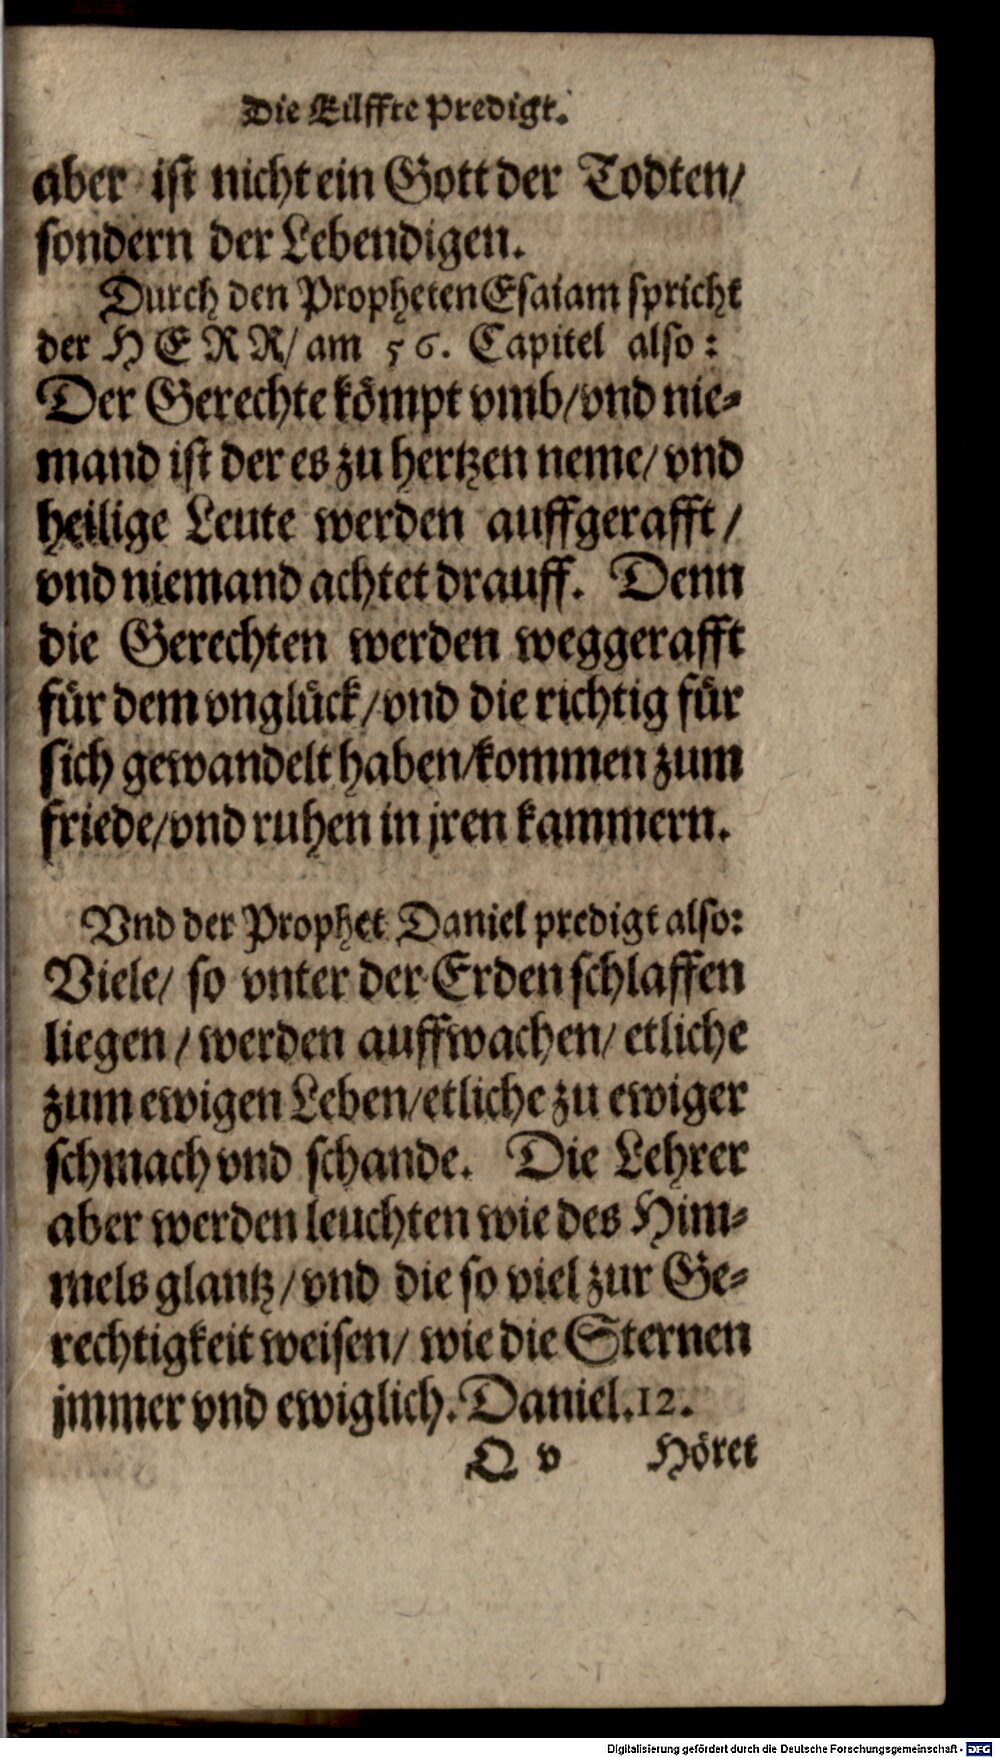 Die Eilffte Predigt.
aber ist nicht ein Gott der Todten/
sondern der Lebendigen.
Durch den Propheten Esaiam spricht
der HERR/ am 56. Capitel also:
Der Gerechte kömpt vmb/ vnd nie-
mand ist der es zu hertzen neme/ vnd
heilige Leute werden auffgerafft/
vnd niemand achtet drauff. Denn
die Gerechten werden weggerafft
für dem vnglück/ vnd die richtig für
sich gewandelt haben/ kommen zum
friede/ vnd ruhen in jren kammern.
Vnd der Prophet Daniel predigt also:
Viele/ so vnter der Erden schlaffen
liegen/ werden auffwachen/ etliche
zum ewigen Leben/ etliche zu ewiger
schmach vnd schande. Die Lehrer
aber werden leuchten wie des Him-
mels glantz/ vnd die so viel zur Ge-
rechtigkeit weisen/ wie die Sternen
jmmer vnd ewiglich. Daniel. 12.
Q v Höret
Digitalisierung gefördert durch die Deutsche Forschungsgemeinschaft - DFG